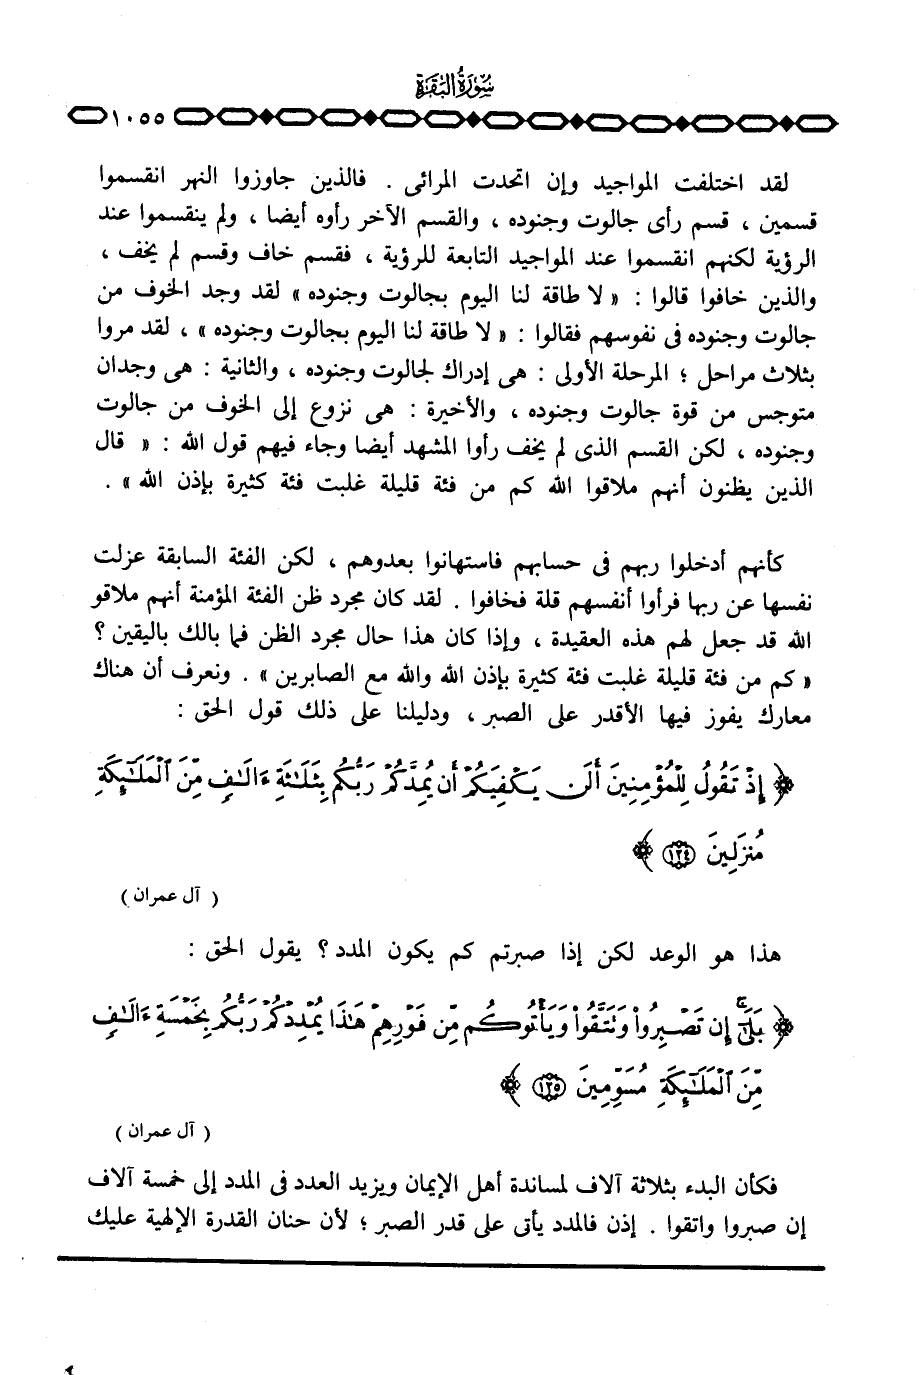 سُورَةُ البَقَرَة
١٠٥٥
لقد اختلفت المواجيد وإن اتحدت المرائى . فالذين جاوزوا النهر انقسموا
قسمين ، قسم رأى جالوت وجنوده ، والقسم الآخر رأوه أيضا ، ولم ينقسموا عند
الرؤية لكنهم انقسموا عند المواجيد التابعة للرؤية ، فقسم خاف وقسم لم يخف ،
والذين خافوا قالوا : « لا طاقة لنا اليوم بجالوت وجنوده » لقد وجد الخوف من
جالوت وجنوده فى نفوسهم فقالوا : « لا طاقة لنا اليوم بجالوت وجنوده » ، لقد مروا
بثلاث مراحل ؛ المرحلة الأولى : هى إدراك لجالوت وجنوده ، والثانية : هى وجدان
متوجس من قوة جالوت وجنوده ، والأخيرة : هى نزوع إلى الخوف من جالوت
وجنوده ، لكن القسم الذى لم يخف رأوا المشهد أيضا وجاء فيهم قول الله : « قال
الذين يظنون أنهم ملاقوا الله كم من فئة قليلة غلبت فئة كثيرة بإذن الله » .
كأنهم أدخلوا ربهم فى حسابهم فاستهانوا بعدوهم ، لكن الفئة السابقة عزلت
نفسها عن ربها فرأوا أنفسهم قلة فخافوا . لقد كان مجرد ظن الفئة المؤمنة أنهم ملاقو
الله قد جعل لهم هذه العقيدة ، وإذا كان هذا حال مجرد الظن فما بالك باليقين ؟
« كم من فئة قليلة غلبت فئة كثيرة بإذن الله والله مع الصابرين » . ونعرف أن هناك
معارك يفوز فيها الأقدر على الصبر ، ودليلنا على ذلك قول الحق :
﴿ إِذْ تَقُولُ لِلْمُؤْمِنِينَ أَلَن يَكْفِيَكُمْ أَن يُمِدَّكُمْ رَبُّكُم بِثَلَٰثَةِ ءَالَٰفٍ مِّنَ ٱلْمَلَٰٓئِكَةِ
مُنزَلِينَ ١٢٤ ﴾
( آل عمران )
هذا هو الوعد لكن إذا صبرتم كم يكون المدد ؟ يقول الحق :
﴿ بَلَىٰٓ ۚ إِن تَصْبِرُواْ وَتَتَّقُواْ وَيَأْتُوكُم مِّن فَوْرِهِمْ هَٰذَا يُمْدِدْكُمْ رَبُّكُم بِخَمْسَةِ ءَالَٰفٍ
مِّنَ ٱلْمَلَٰٓئِكَةِ مُسَوِّمِينَ ١٢٥ ﴾
( آل عمران )
فكأن البدء بثلاثة آلاف لمساندة أهل الإيمان ويزيد العدد فى المدد إلى خمسة آلاف
إن صبروا واتقوا . إذن فالمدد يأتى على قدر الصبر ؛ لأن حنان القدرة الإلهية عليك